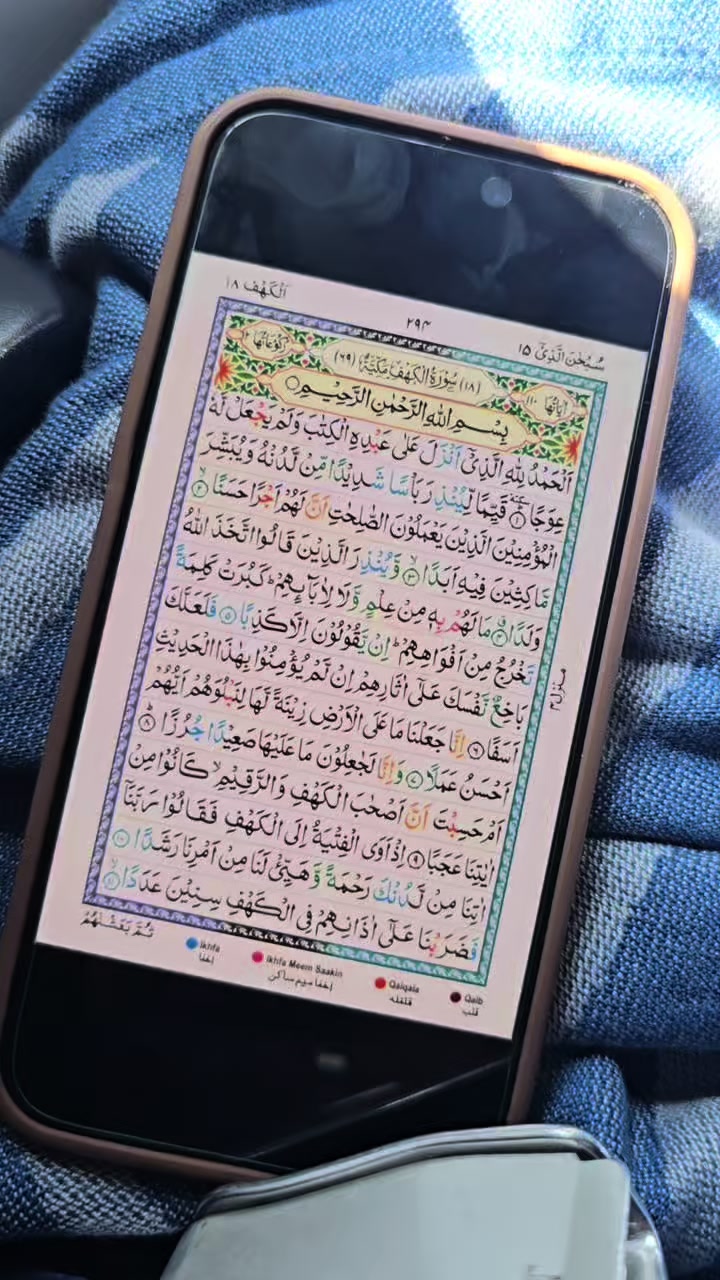 سُبْحٰنَ الَّذِیْۤ ۱۵
۲۹۴
اَلْكَهْف ۱۸
اٰیَاتُهَا ۱۱۰
(۱۸) سُوْرَةُ الْكَهْفِ مَكِّیَّةٌ (۶۹)
رُكُوْعَاتُهَا
بِسْمِ اللّٰهِ الرَّحْمٰنِ الرَّحِیْمِ
اَلْحَمْدُ لِلّٰهِ الَّذِیْۤ اَنْزَلَ عَلٰی عَبْدِهِ الْكِتٰبَ وَلَمْ یَجْعَلْ لَّهٗ
عِوَجًا ۱ قَیِّمًا لِّیُنْذِرَ بَاْسًا شَدِیْدًا مِّنْ لَّدُنْهُ وَیُبَشِّرَ
الْمُؤْمِنِیْنَ الَّذِیْنَ یَعْمَلُوْنَ الصّٰلِحٰتِ اَنَّ لَهُمْ اَجْرًا حَسَنًا ۲
مَّاكِثِیْنَ فِیْهِ اَبَدًا ۳ وَّیُنْذِرَ الَّذِیْنَ قَالُوا اتَّخَذَ اللّٰهُ
وَلَدًا ۴ مَا لَهُمْ بِهٖ مِنْ عِلْمٍ وَّلَا لِاٰبَآىِٕهِمْ كَبُرَتْ كَلِمَةً
تَخْرُجُ مِنْ اَفْوَاهِهِمْ اِنْ یَّقُوْلُوْنَ اِلَّا كَذِبًا ۵ فَلَعَلَّكَ
بَاخِعٌ نَّفْسَكَ عَلٰۤی اٰثَارِهِمْ اِنْ لَّمْ یُؤْمِنُوْا بِهٰذَا الْحَدِیْثِ
اَسَفًا ۶ اِنَّا جَعَلْنَا مَا عَلَی الْاَرْضِ زِیْنَةً لَّهَا لِنَبْلُوَهُمْ اَیُّهُمْ
اَحْسَنُ عَمَلًا ۷ وَاِنَّا لَجٰعِلُوْنَ مَا عَلَیْهَا صَعِیْدًا جُرُزًا ۸
اَمْ حَسِبْتَ اَنَّ اَصْحٰبَ الْكَهْفِ وَالرَّقِیْمِ كَانُوْا مِنْ
اٰیٰتِنَا عَجَبًا ۹ اِذْ اَوَی الْفِتْیَةُ اِلَی الْكَهْفِ فَقَالُوْا رَبَّنَاۤ
اٰتِنَا مِنْ لَّدُنْكَ رَحْمَةً وَّهَیِّئْ لَنَا مِنْ اَمْرِنَا رَشَدًا ۱۰
فَضَرَبْنَا عَلٰۤی اٰذَانِهِمْ فِی الْكَهْفِ سِنِیْنَ عَدَدًا ۱۱
ثُمَّ بَعَثْنٰهُمْ
Ikhfa
اخفا
Ikhfa Meem Saakin
اخفا میم ساكن
Qalqala
قلقله
Qalb
قلب